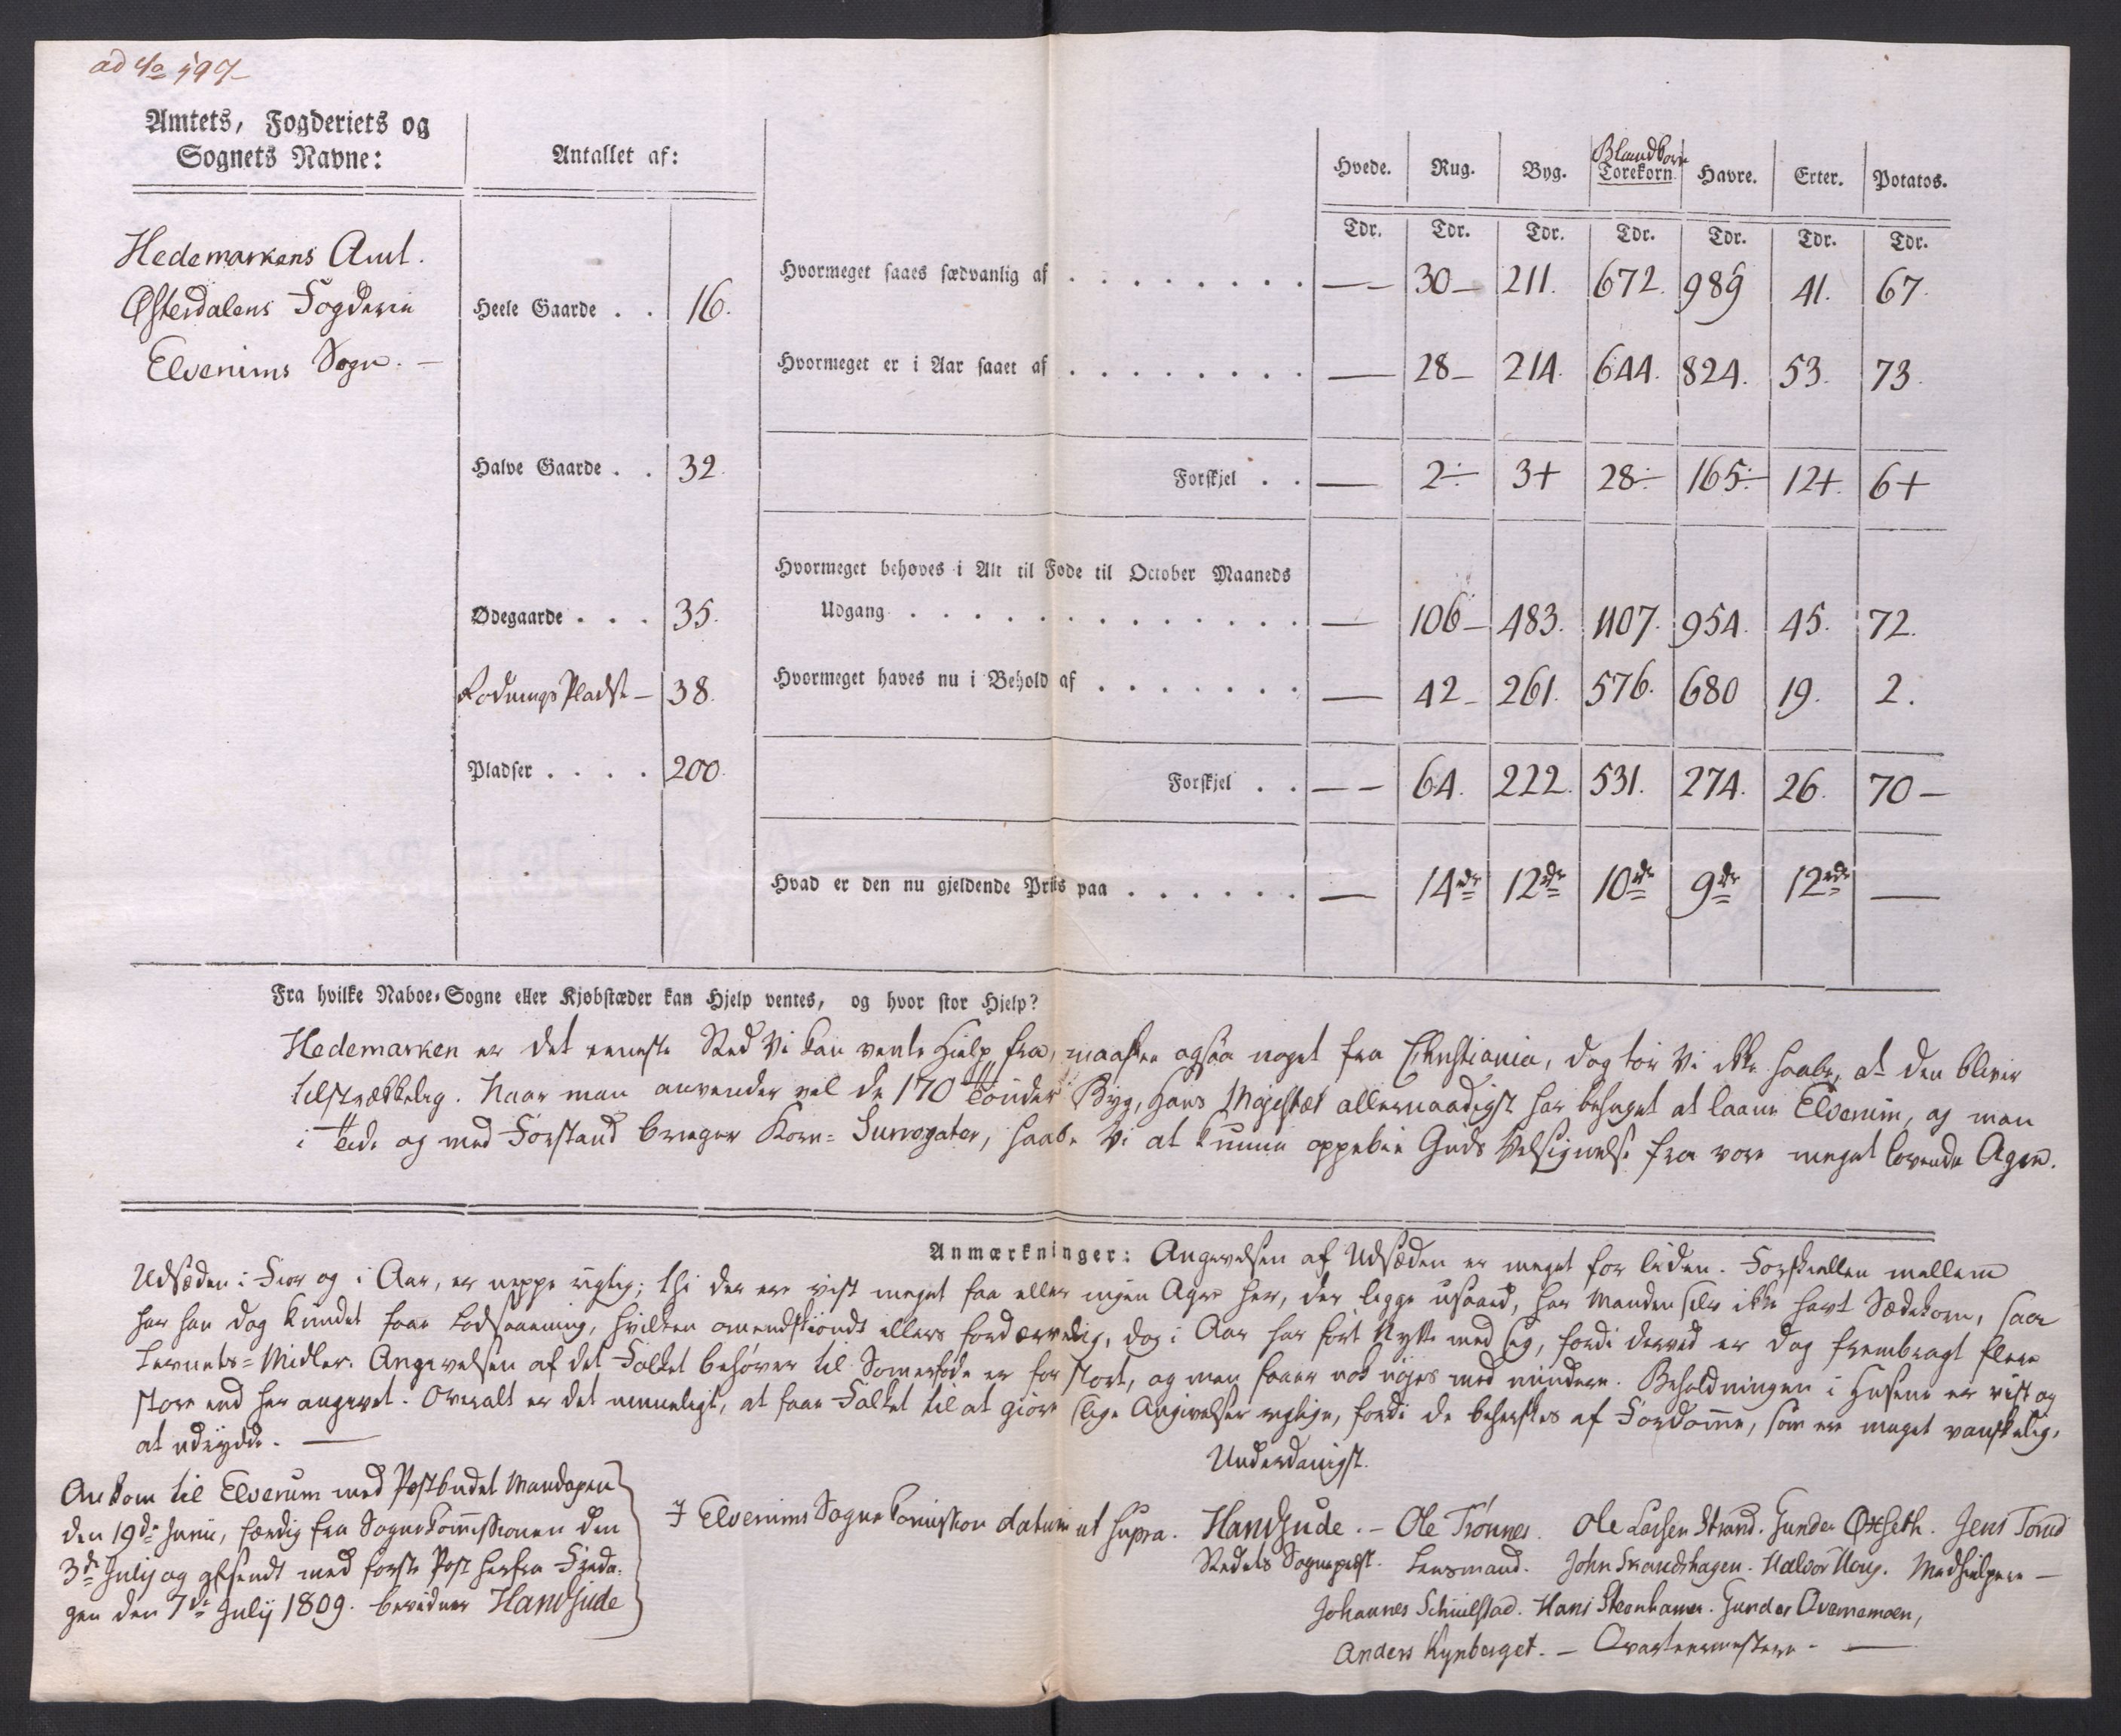 ad No 597
Amtets, Fogderiets og
Sognets Navne:
Antallet af:
Hvede. Rug. Byg. Blandkorn Torekorn. Havre. Erter. Potatos.
Tdr. Tdr. Tdr. Tdr. Tdr. Tdr. Tdr.
Hedemarkens Amt.
Østerdalens Fogderie
Elverums Sogn. —
Heele Gaarde . . 16.
Halve Gaarde . . 32
Ødegaarde . . . 35.
Rødnings Pladse — 38.
Pladser . . . . 200.
Hvormeget saaes sædvanlig af . . . . . . . . —— 30— 211. 672. 989 41. 67.
Hvormeget er i Aar saaet af . . . . . . . . — 28— 214. 644. 824. 53. 73.
Forskjel . . — 2÷ 3+ 28÷ 165÷ 12+. 6+
Hvormeget behøves i Alt til Føde til October Maaneds
Udgang . . . . . . . . . . . . . — 106— 483. 1107. 954. 45. 72.
Hvormeget haves nu i Behold af . . . . . . . — 42— 261. 576. 680 19. 2.
Forskjel . . —— 64. 222. 531. 274. 26. 70—
Hvad er den nu gjeldende Priis paa . . . . . . — 14 rdr 12 rdr 10 rdr 9 rdr 12 rdr —
Fra hvilke Naboe-Sogne eller Kjøbstæder kan Hjelp ventes, og hvor stor Hjelp?
Hedemarken er det eeneste Sted Vi kan vente Hielp fra, maaskee ogsaa noget fra Christiania, dog tør Vi ikke haabe, at den bliver
tilstrækkelig. Naar man anvender vel de 170 Tønder Byg, Hans Majestæt allernaadigst har behaget at laane Elverum, og man
i Tide og med Forstand bruger Korn-Surrogater, haabe Vi at kunne oppebie Guds Velsignelse fra vore meget lovende Agre.
Anmærkninger: Angivelsen af Udsæden er meget for liden. Forskiellen mellem
Udsæden i Fior og i Aar, er neppe rigtig; thi der ere vist meget faa eller ingen Agre her, der ligge usaaed, har Manden selv ikke havt Sædekorn, saa
har han dog kundet faae Lodsaaening, hvilken omendskiøndt ellers fordærvelig, dog i Aar har ført Nytte med sig, fordi derved er dog frembragt flere
Levnets-Midler. Angivelsen af det Folket behøver til Somerføde er for stort, og man faaer nok nøjes med mindere. Beholdningen i Husene er vist og
større end her angivet. Overalt er det umueligt, at faae Folket til at giøre slige Angivelser rigtige, fordi de beherskes af Fordomme, som ere meget vanskelig,
at udrydde. —
Underdanigst.
Ankom til Elverum med Postbudet Mandagen
den 19de Junii, færdig fra Sognekommissionen den
3de Julij og afsendt med første Post herfra Freda-
gen den 7de Julij 1809. bevidner HandJude
I Elverums Sogne Comission datum ut supra. HandJude. — Ole Trønnes. Ole Larsen Strand. Gunder Oxseth. Jens
Stedets Sognepræst. Lensmand. John Strandshagen. Halvor Moug. Medhielpere —
Johannes Schullstad. Hans Steenhamer. Gunder Overnemoen,
Anders Kynberget. — Qvarteermestere. —